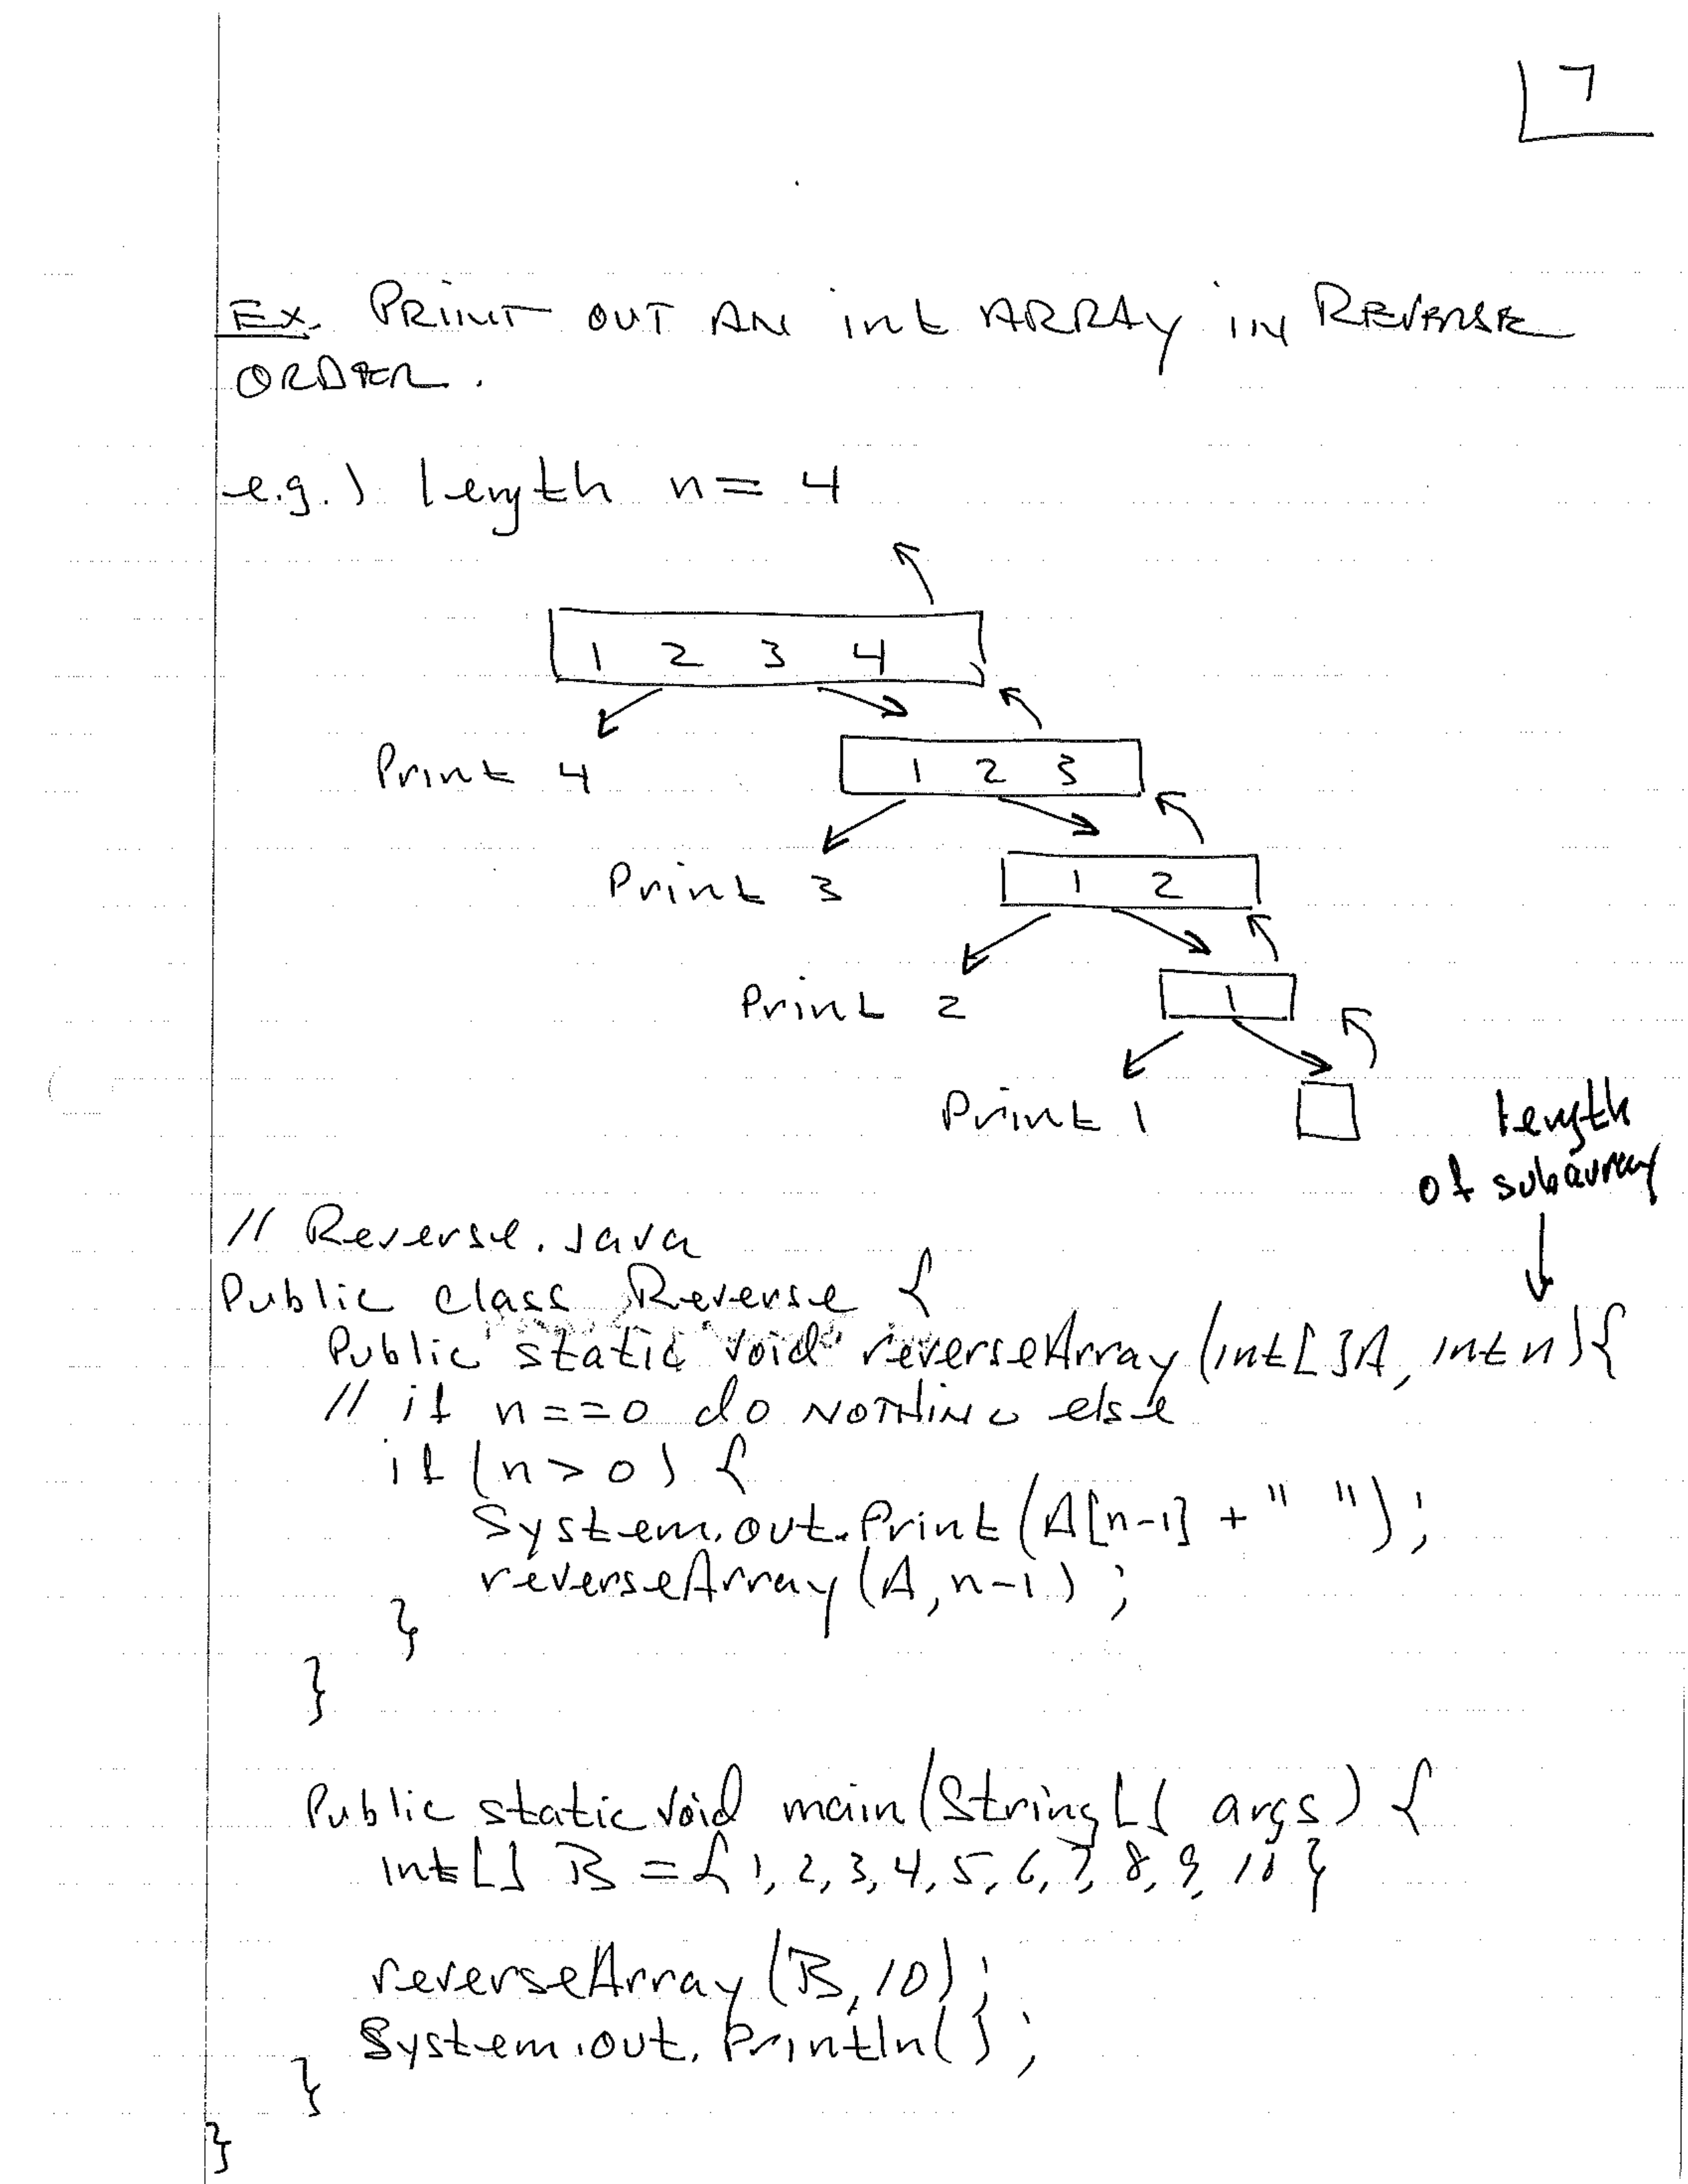 7
Ex. PRINT OUT AN int ARRAY IN REVERSE
ORDER.
e.g.) length n = 4
1 2 3 4
Print 4
1 2 3
Print 3
1 2
Print 2
1
Print 1
length
of subarray
// Reverse.java
Public class Reverse {
Public static void reverseArray(int[]A, int n){
// if n==0 do NOTHING else
if (n > 0) {
System.out.Print(A[n-1] + " ");
reverseArray(A, n-1);
}
}
Public static void main(String[] args) {
int[] B = {1, 2, 3, 4, 5, 6, 7, 8, 9, 10}
reverseArray(B, 10);
System.out.Println();
}
}